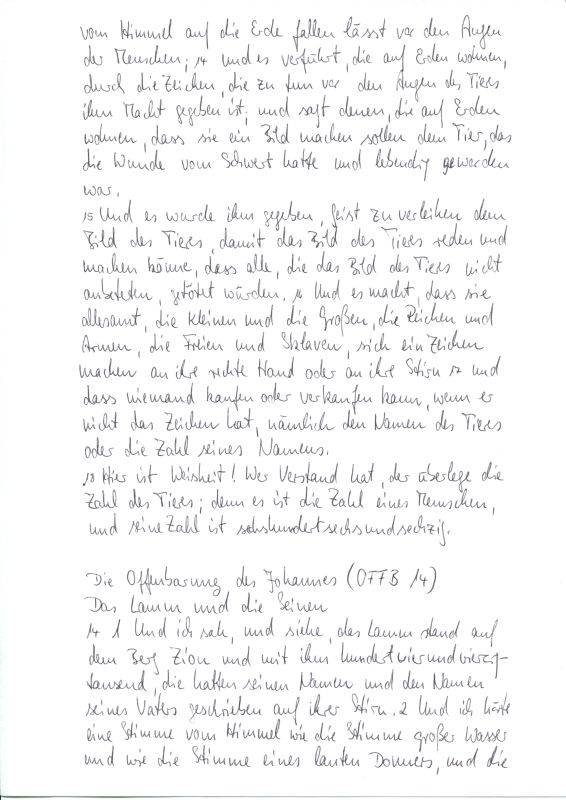 vom Himmel auf die Erde fallen lässt vor den Augen
der Menschen; 14 und es verführt, die auf Erden wohnen,
durch die Zeichen, die zu tun vor den Augen des Tieres
ihm Macht gegeben ist, und sagt denen, die auf Erden
wohnen, dass sie ein Bild machen sollen dem Tier, das
die Wunde vom Schwert hatte und lebendig geworden
war.
15 Und es wurde ihm gegeben, Geist zu verleihen dem
Bild des Tieres, damit das Bild des Tieres reden und
machen könne, dass alle, die das Bild des Tieres nicht
anbeteten, getötet würden. 16 Und es macht, dass sie
allesamt, die Kleinen und die Großen, die Reichen und
Armen, die Freien und Sklaven, sich ein Zeichen
machen an ihre rechte Hand oder an ihre Stirn 17 und
dass niemand kaufen oder verkaufen kann, wenn er
nicht das Zeichen hat, nämlich den Namen des Tieres
oder die Zahl seines Namens.
18 Hier ist Weisheit! Wer Verstand hat, der überlege die
Zahl des Tieres; denn es ist die Zahl eines Menschen,
und seine Zahl ist sechshundertsechsundsechzig.
Die Offenbarung des Johannes (OFFB 14)
Das Lamm und die Seinen
14 1 Und ich sah, und siehe, das Lamm stand auf
dem Berg Zion und mit ihm hundertvierundvierzig-
tausend, die hatten seinen Namen und den Namen
seines Vaters geschrieben auf ihrer Stirn. 2 Und ich hörte
eine Stimme vom Himmel wie die Stimme großer Wasser
und wie die Stimme eines lauten Donners, und die